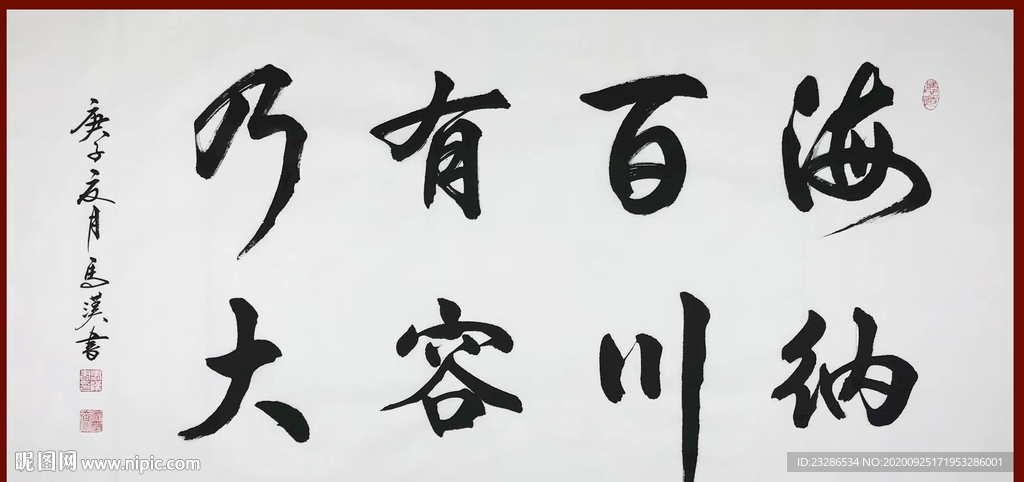 海纳
百川
有容
乃大
庚子夏月馬漢書
昵图网 www.nipic.com
ID:23286534 NO:20200925171953286001